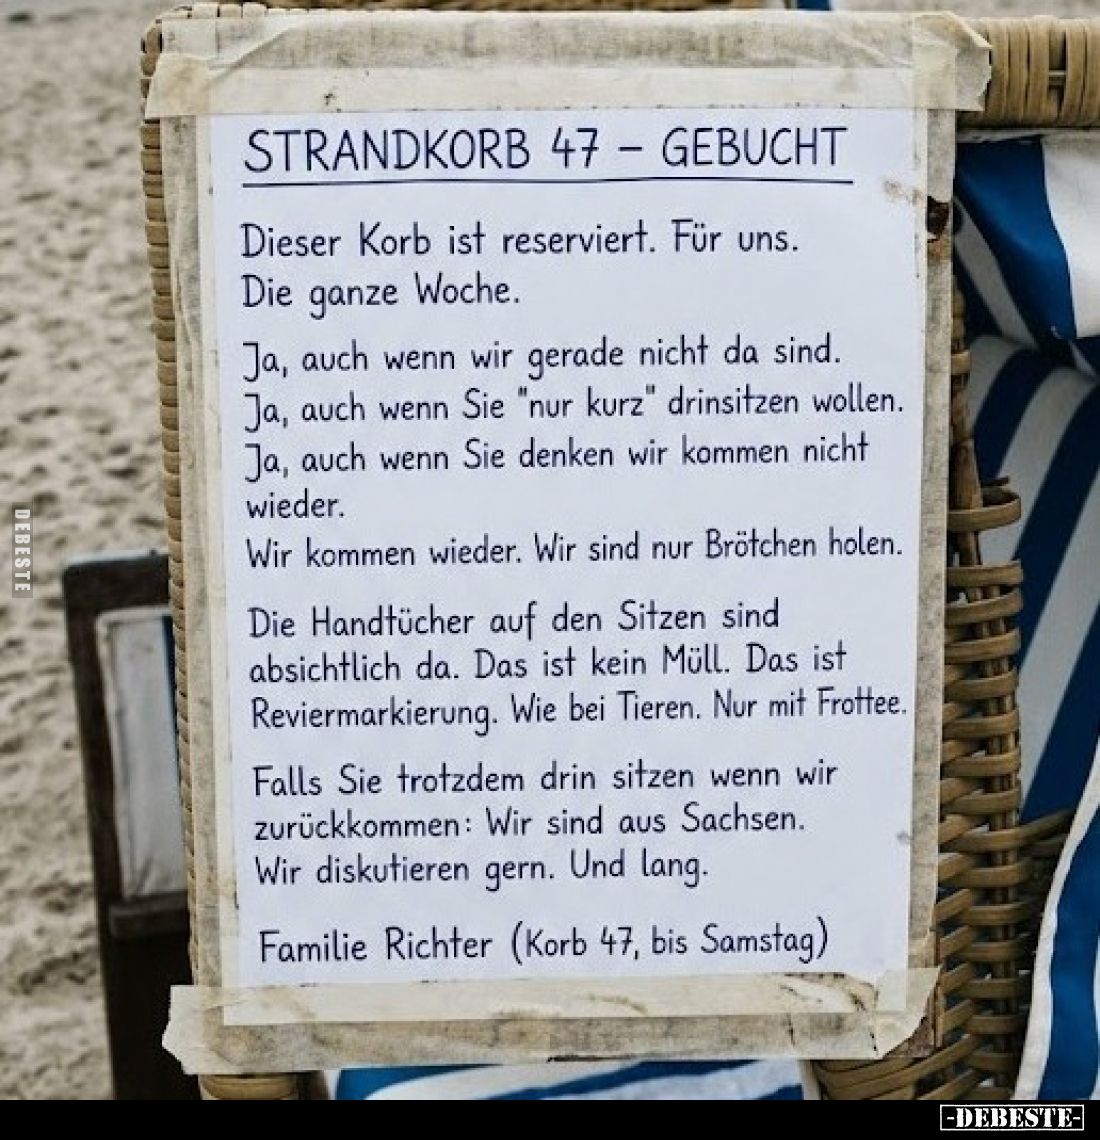 STRANDKORB 47 – GEBUCHT
Dieser Korb ist reserviert. Für uns.
Die ganze Woche.
Ja, auch wenn wir gerade nicht da sind.
Ja, auch wenn Sie "nur kurz" drinsitzen wollen.
Ja, auch wenn Sie denken wir kommen nicht
wieder.
Wir kommen wieder. Wir sind nur Brötchen holen.
Die Handtücher auf den Sitzen sind
absichtlich da. Das ist kein Müll. Das ist
Reviermarkierung. Wie bei Tieren. Nur mit Frottee.
Falls Sie trotzdem drin sitzen wenn wir
zurückkommen: Wir sind aus Sachsen.
Wir diskutieren gern. Und lang.
Familie Richter (Korb 47, bis Samstag)
DEBESTE
-DEBESTE-